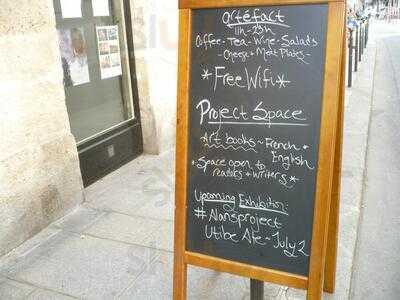 Artéfact
11h-23h
Coffee-Tea-Wine-Salads
Cheese + Meat Plates-
*Free Wifi*
Project Space
Art books ~ French +
English
*Space open to
readers + writers*
Upcoming Exhibition:
Utibe Ate ~ July 2